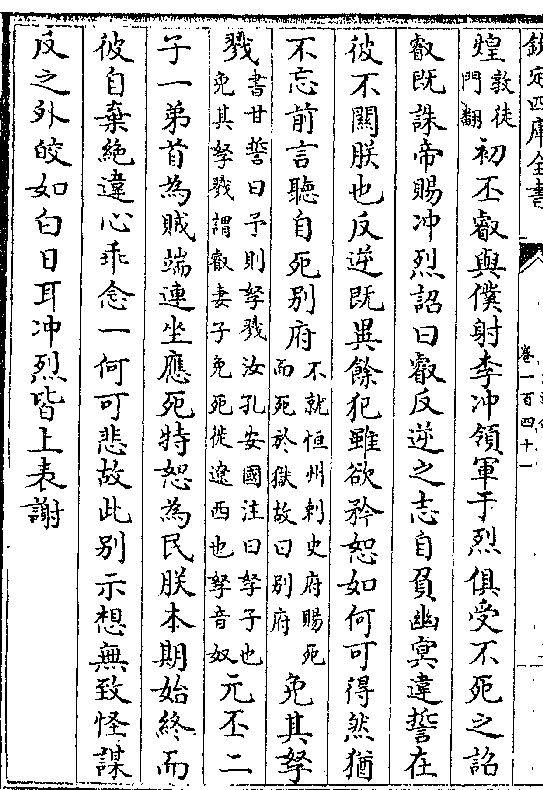 欽定四庫全書
卷一百四十一
煌敦徒門翻初丕叡與僕射李冲領軍于烈俱受不死之詔
叡既誅帝賜冲烈詔曰叡反逆之志自負幽冥違誓在
彼不關朕也反逆既異餘犯雖欲矜恕如何可得然猶
不忘前言聽自死别府不就恒州刺史府賜死而死於獄故曰别府免其孥
戮書甘誓曰予則孥戮汝孔安國注曰孥子也免其孥戮謂叡妻子免死徙遼西也孥音奴元丕二
子一弟首為賊端連坐應死特恕為民朕本期始終而
彼自棄絶違心乖念一何可悲故此别示想無致怪謀
反之外皎如白日耳冲烈皆上表謝